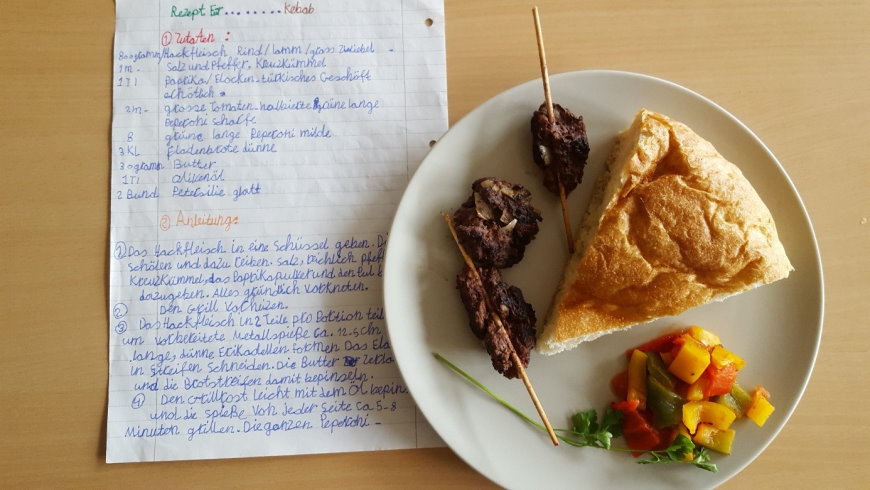 Rezept Für........Kebab
① Zutaten :
800gramm/Hackfleisch Rind/Lamm/gross Zwiebel
1m - Salz und Pfeffer, Kreuzkümmel
1Tl Paprika/Flocken.türkisches Geschäft
erhötlich.
2m- grosse Tomaten. halbierte grüne lange
Peperoni scharfe
8 grüne lange Peperoni milde
3 KL Fladenbrote dünne
30gramm Butter
1Tl Olivenöl
2 Bund Petersilie glatt
② Anleitung:
① Das Hackfleisch in eine Schüssel geben. Di
schälen und dazu reiben. Salz, reichlich Pfef
Kreuzkümmel, das Paprikapulver und den Pul b
dazugeben. Alles gründlich verkneten.
② Den Grill vorhizen.
③ Das Hackfleisch in 2 Teile pro Portion teil
um vorbereitete Metallspieße ca. 12.5cm
lange, dünne Frikadellen formen Das Fla
in Streifen schneiden. Die Butter zerla
und die Brotstreifen damit bepinseln.
④ Den Grillrost leicht mit dem Öl bepin
und die spieße von jeder Seite ca 5-8
Minuten grillen. Die ganzen Peperoni -